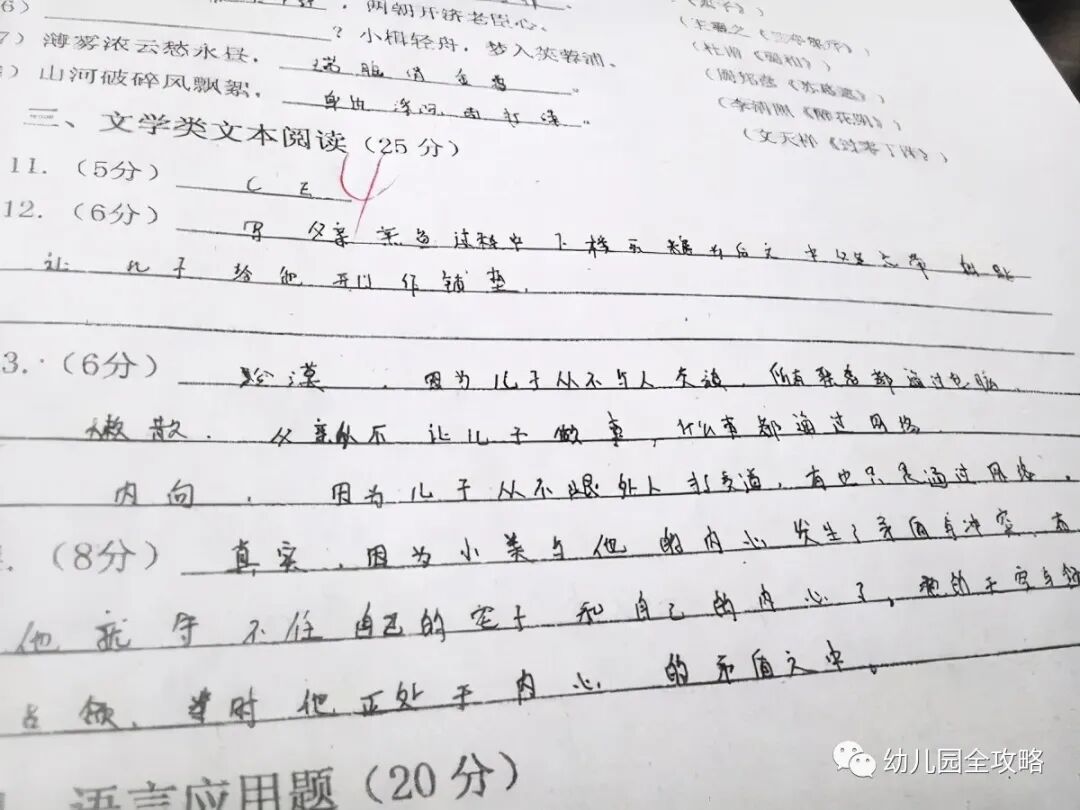 6) ，两朝开济老臣心。
? 小楫轻舟，梦入芙蓉浦。
7) 薄雾浓云愁永昼，瑞脑销金兽。
) 山河破碎风飘絮，
(杜甫《蜀相》)
(周邦彦《苏幕遮》)
(李清照《醉花阴》)
(文天祥《过零丁洋》)
三、文学类文本阅读（25分）
11.（5分） C E 4
12.（6分） 写父亲 过程中下楼
让儿子给他开门作铺垫.
3.（6分） 冷漠，因为儿子从不与人交谈，所有 都通过电脑
懒散. 父亲从不让儿子做事，什么事都通过网络
内向，因为儿子从不跟外人打交道，有也只是通过网络.
.（8分） 真实，因为小美与他的内心发生了矛盾与冲突
他就守不住自己的 和自己的内心了，
占领，当时他正处于内心的矛盾之中。
语言应用题（20分）
幼儿园全攻略